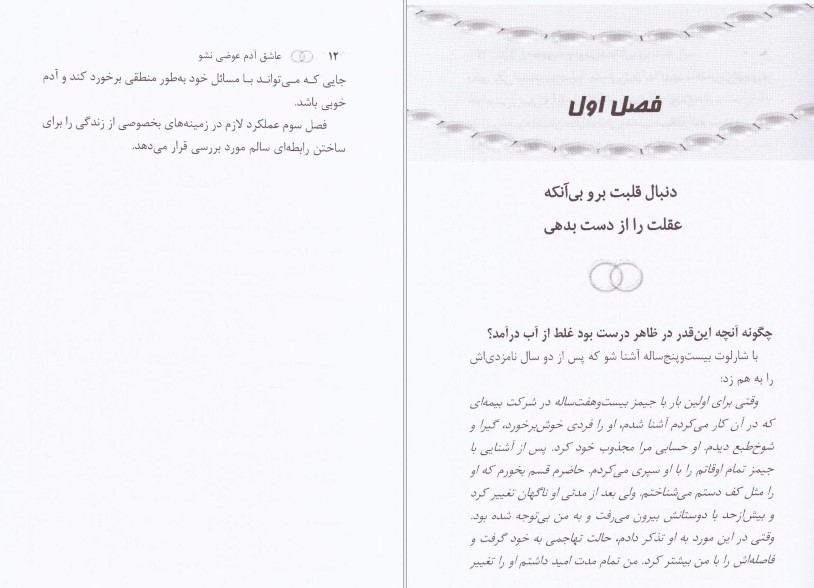 ۱۲ عاشق آدم عوضی نشو
جایی که می‌تواند با مسائل خود به‌طور منطقی برخورد کند و آدم
خوبی باشد.
فصل سوم عملکرد لازم در زمینه‌های بخصوصی از زندگی را برای
ساختن رابطه‌ای سالم مورد بررسی قرار می‌دهد.
فصل اول
دنبال قلبت برو بی‌آنکه
عقلت را از دست بدهی
چگونه آنچه این‌قدر در ظاهر درست بود غلط از آب درآمد؟
با شارلوت بیست‌وپنج‌ساله آشنا شو که پس از دو سال نامزدی‌اش
را به هم زد:
وقتی برای اولین بار با جیمز بیست‌وهفت‌ساله در شرکت بیمه‌ای
که در آن کار می‌کردم آشنا شدم، او را فردی خوش‌برخورد، گیرا و
شوخ‌طبع دیدم. او حسابی مرا مجذوب خود کرد. پس از آشنایی با
جیمز تمام اوقاتم را با او سپری می‌کردم. حاضرم قسم بخورم که او
را مثل کف دستم می‌شناختم. ولی بعد از مدتی او ناگهان تغییر کرد
و بیش‌ازحد با دوستانش بیرون می‌رفت و به من بی‌توجه شده بود.
وقتی در این مورد به او تذکر دادم، حالت تهاجمی به خود گرفت و
فاصله‌اش را با من بیشتر کرد. من تمام مدت امید داشتم او را تغییر